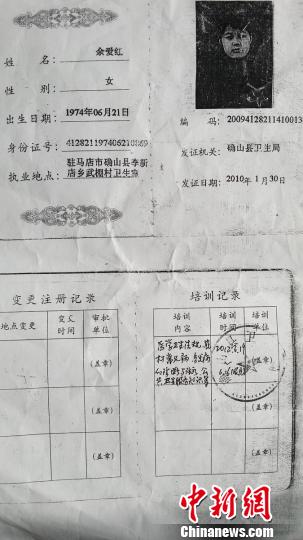 姓 名： 余爱红
性 别： 女
出生日期： 1974年06月21日
身份证号：
执业地点： 驻马店市确山县李新
店乡武棚村卫生室
编 码： 20094128211410013
发证机关： 确山县卫生局
发证日期： 2010年1月30日
变更注册记录
地点变更
变更时间
审批单位
(盖章)
(盖章)
(盖章)
培训记录
培训内容
培训时间
培训单位
(盖章)
(盖章)
(盖章)
中新网
www.chinanews.com